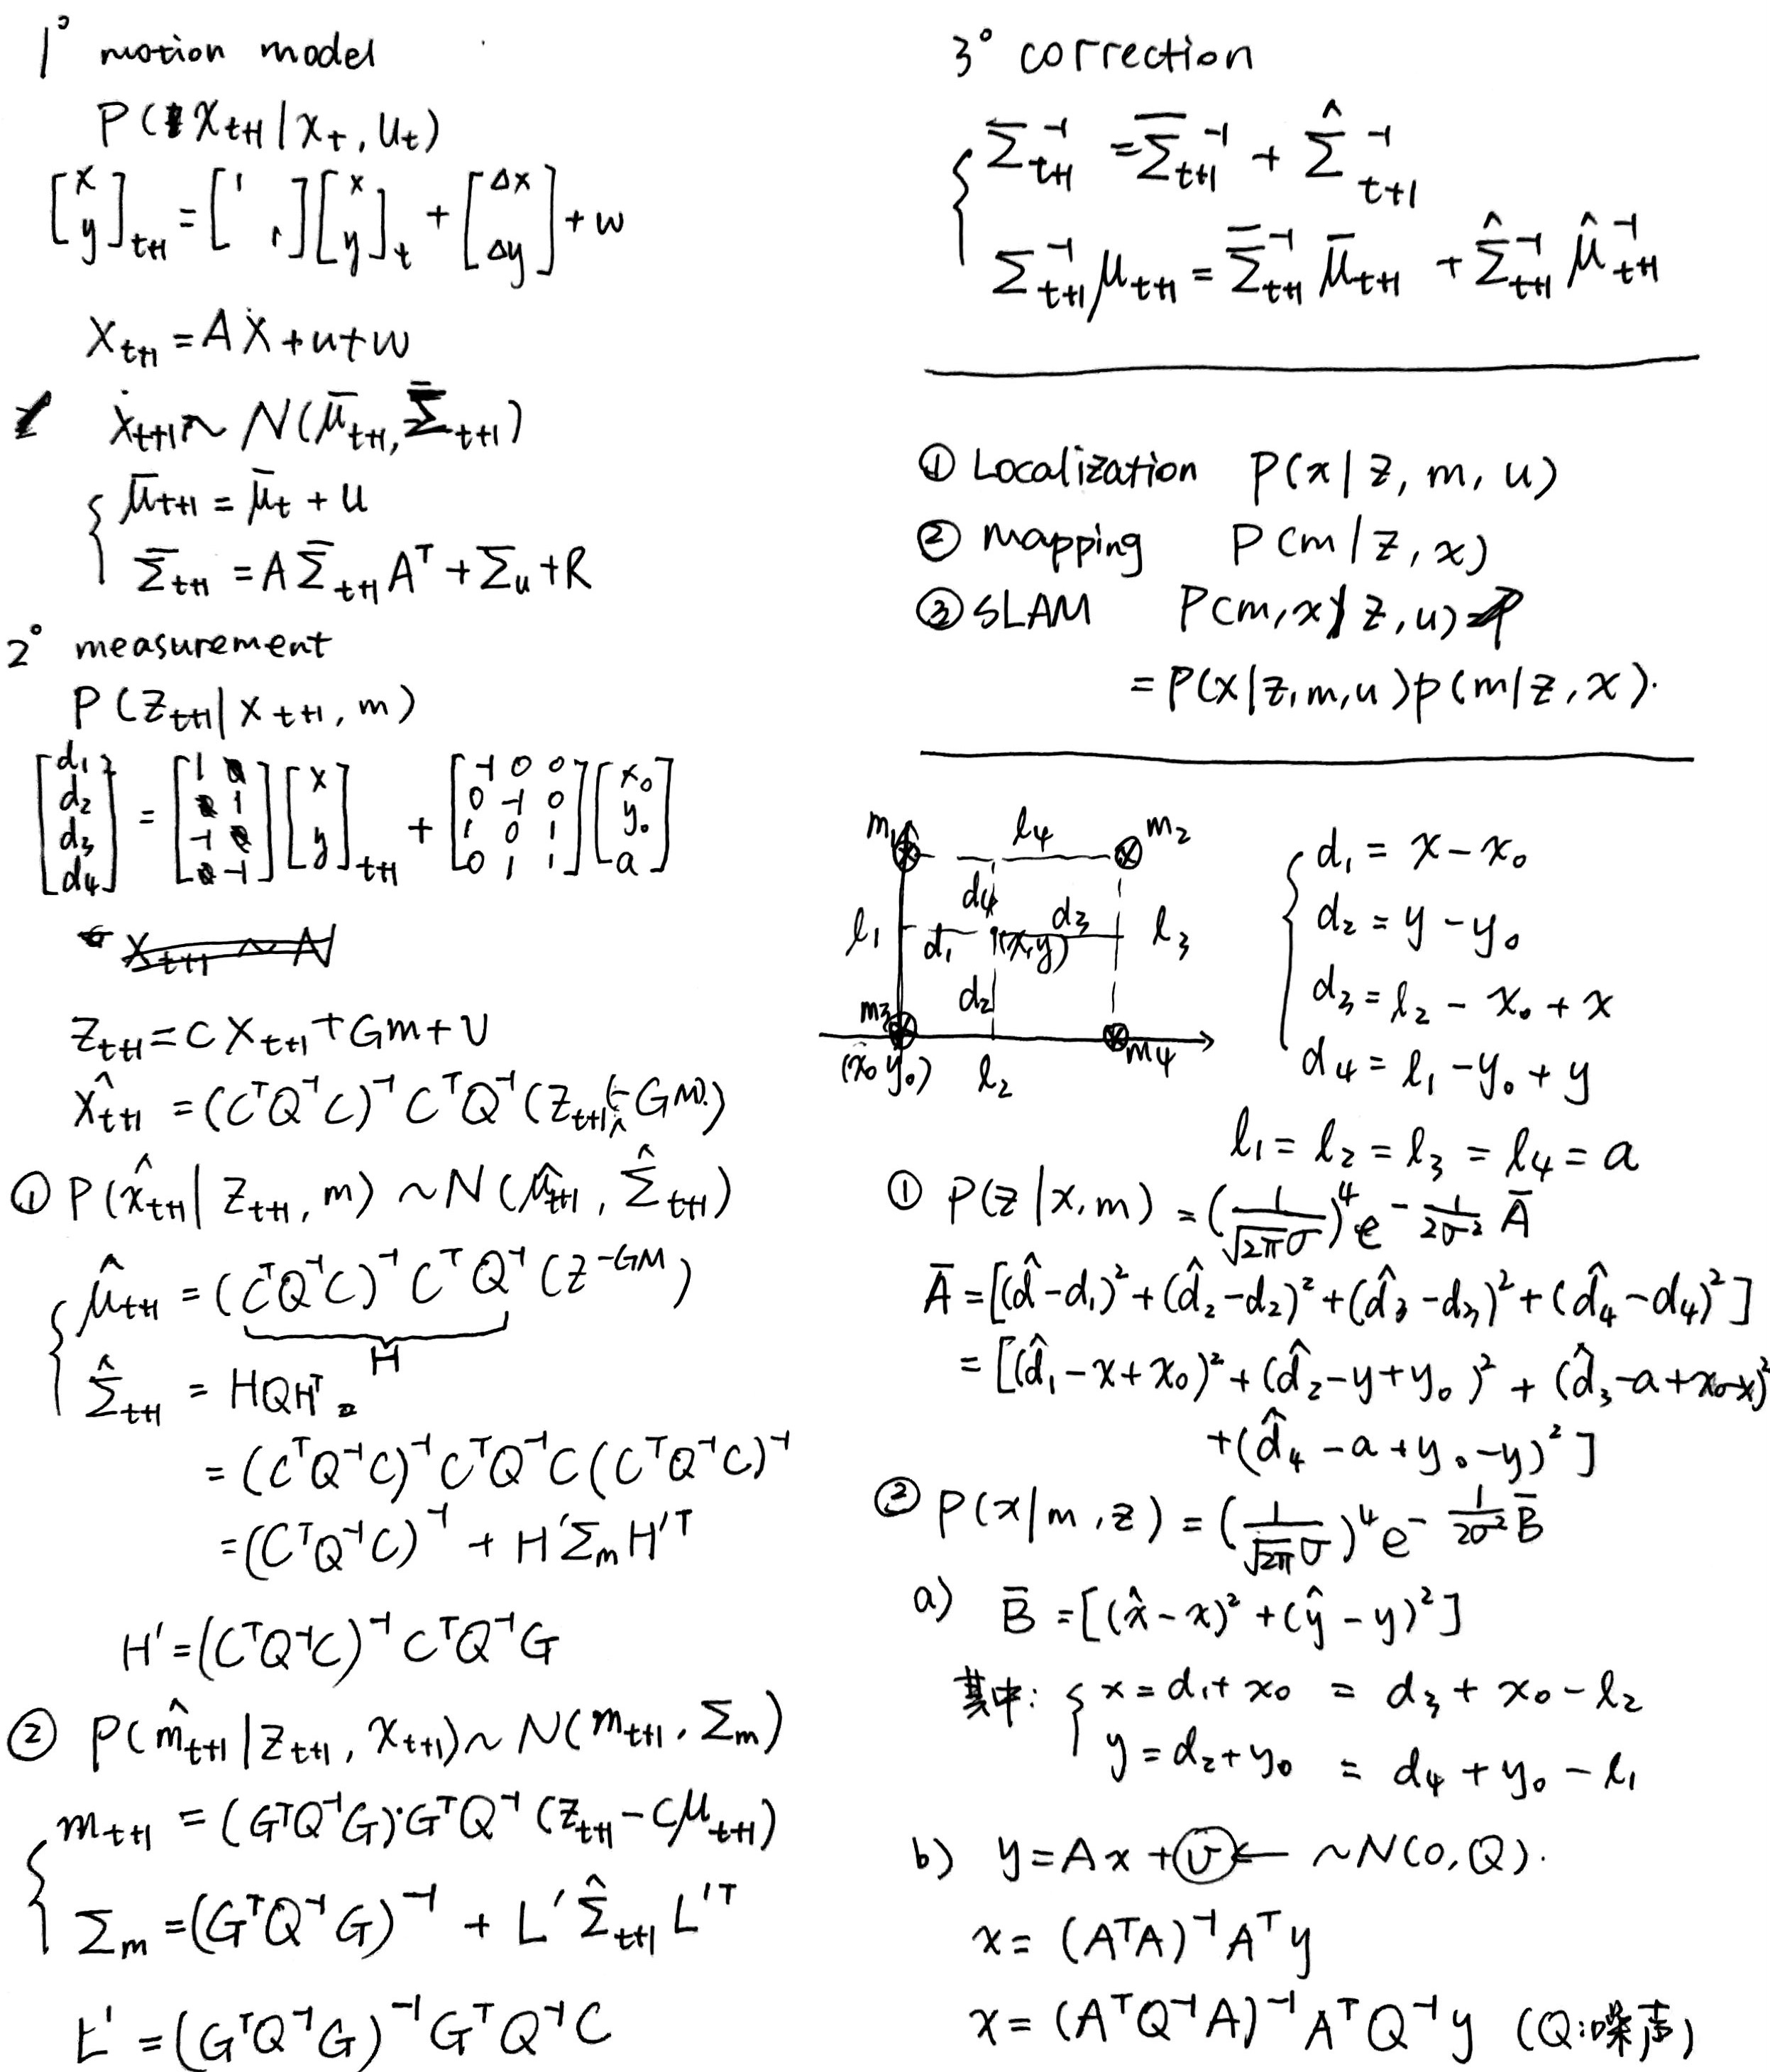 1° motion model
P(x_{t+1}|x_t, u_t)
[x y]_{t+1} = [1 1][x y]_t + [Δx Δy] + w
X_{t+1} = AX + u + w
x_{t+1} ~ N(μ̄_{t+1}, Σ̄_{t+1})
{ μ̄_{t+1} = μ̄_t + u
Σ̄_{t+1} = A Σ̄_{t+1} A^T + Σ_u + R
2° measurement
P(Z_{t+1}|X_{t+1}, m)
[d_1 d_2 d_3 d_4] = [1 0; 0 1; -1 0; 0 -1][x y]_{t+1} + [-1 0 0; 0 -1 0; 1 0 1; 0 1 1][x_0 y_0 a]
X_{t+1} ~ N
Z_{t+1} = C X_{t+1} + Gm + υ
x̂_{t+1} = (C^T Q^{-1} C)^{-1} C^T Q^{-1} (Z_{t+1} - Gm)
① P(x̂_{t+1}|Z_{t+1}, m) ~ N(μ̂_{t+1}, Σ̂_{t+1})
{ μ̂_{t+1} = (C^T Q^{-1} C)^{-1} C^T Q^{-1} (Z - GM)
H
Σ̂_{t+1} = HQH^T
= (C^T Q^{-1} C)^{-1} C^T Q^{-1} C (C^T Q^{-1} C)^{-1}
= (C^T Q^{-1} C)^{-1} + H' Σ_m H'^T
H' = (C^T Q^{-1} C)^{-1} C^T Q^{-1} G
② P(m̂_{t+1}|Z_{t+1}, X_{t+1}) ~ N(m_{t+1}, Σ_m)
{ m_{t+1} = (G^T Q^{-1} G)·G^T Q^{-1} (Z_{t+1} - Cμ_{t+1})
Σ_m = (G^T Q^{-1} G)^{-1} + L' Σ̂_{t+1} L'^T
L' = (G^T Q^{-1} G)^{-1} G^T Q^{-1} C
3° correction
{ Σ_{t+1}^{-1} = Σ̄_{t+1}^{-1} + Σ̂_{t+1}^{-1}
Σ_{t+1}^{-1} μ_{t+1} = Σ̄_{t+1}^{-1} μ̄_{t+1} + Σ̂_{t+1}^{-1} μ̂_{t+1}^{-1}
① Localization P(x|z, m, u)
② mapping P(m|z, x)
③ SLAM P(m, x|z, u)
= P(x|z, m, u) p(m|z, x).
m_1 l_4 m_2
d_4
l_1 d_1 (x,y) d_3 l_3
d_2
m_3 m_4
(x_0 y_0) l_2
{ d_1 = x - x_0
d_2 = y - y_0
d_3 = l_2 - x_0 + x
d_4 = l_1 - y_0 + y
l_1 = l_2 = l_3 = l_4 = a
① P(z|x, m) = (1/(√2π σ))^4 e^{-1/(2σ^2) Ā}
Ā = [(d̂ - d_1)^2 + (d̂_2 - d_2)^2 + (d̂_3 - d_3)^2 + (d̂_4 - d_4)^2]
= [(d̂_1 - x + x_0)^2 + (d̂_2 - y + y_0)^2 + (d̂_3 - a + x_0 - x)^2
+ (d̂_4 - a + y_0 - y)^2]
② P(x|m, z) = (1/(√2π σ))^4 e^{-1/(2σ^2) B̄}
a) B̄ = [(x̂ - x)^2 + (ŷ - y)^2]
其中: { x = d_1 + x_0 = d_3 + x_0 - l_2
y = d_2 + y_0 = d_4 + y_0 - l_1
b) y = Ax + υ ← ~N(0, Q).
x = (A^T A)^{-1} A^T y
x = (A^T Q^{-1} A)^{-1} A^T Q^{-1} y (Q:噪声)